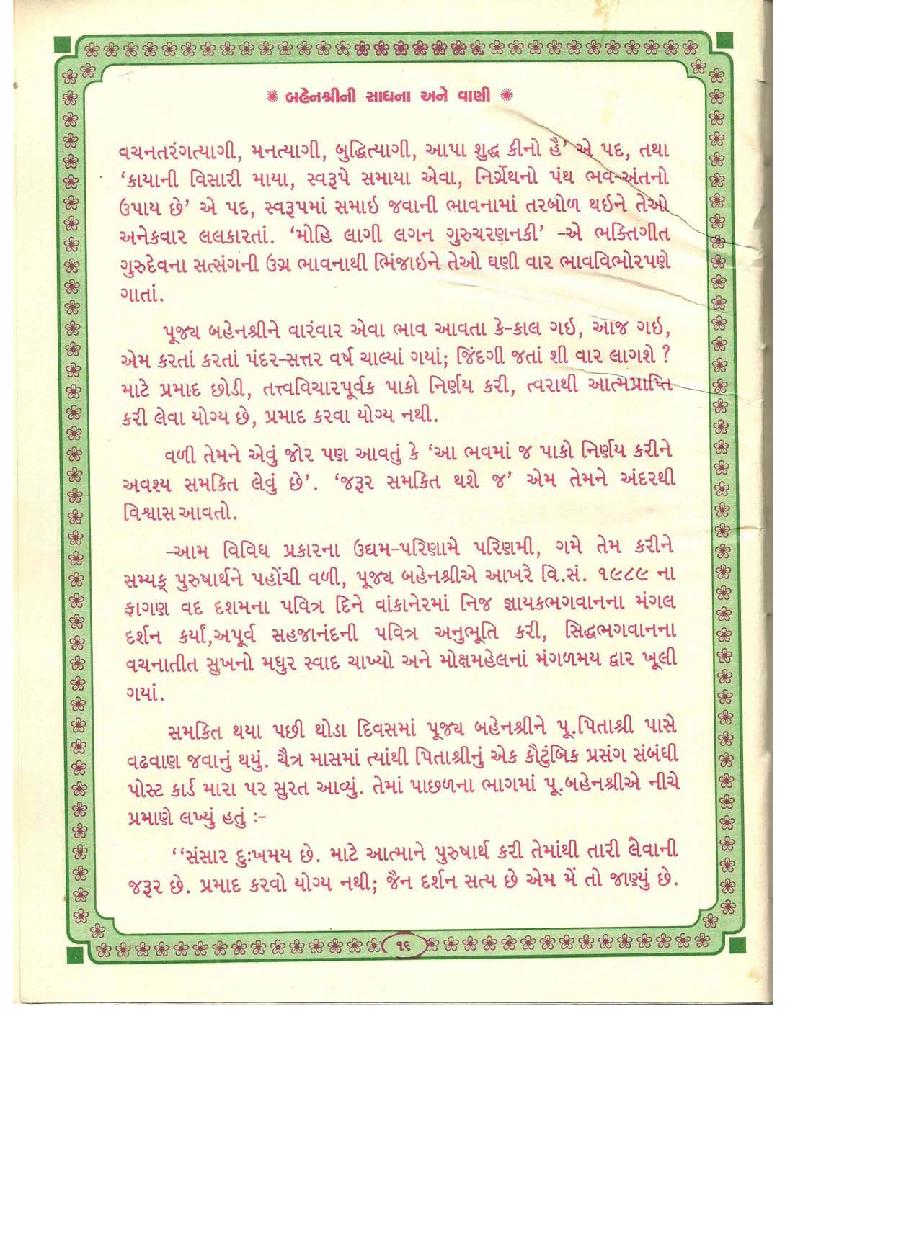 ❋ બહેનશ્રીની સાધના અને વાણી ❋
વચનતરંગત્યાગી, મનત્યાગી, બુદ્ધિત્યાગી, આપા શુદ્ધ કીનો હૈ’ એ પદ, તથા
‘કાયાની વિસારી માયા, સ્વરૂપે સમાયા એવા, નિર્ગ્રંથનો પંથ ભવ-અંતનો
ઉપાય છે’ એ પદ, સ્વરૂપમાં સમાઇ જવાની ભાવનામાં તરબોળ થઇને તેઓ
અનેકવાર લલકારતાં. ‘મોહિ લાગી લગન ગુરુચરણનકી’ -એ ભક્તિગીત
ગુરુદેવના સત્સંગની ઉગ્ર ભાવનાથી ભિંજાઇને તેઓ ઘણી વાર ભાવવિભોરપણે
ગાતાં.
પૂજ્ય બહેનશ્રીને વારંવાર એવા ભાવ આવતા કે-કાલ ગઇ, આજ ગઇ,
એમ કરતાં કરતાં પંદર-સત્તર વર્ષ ચાલ્યાં ગયાં; જિંદગી જતાં શી વાર લાગશે ?
માટે પ્રમાદ છોડી, તત્ત્વવિચારપૂર્વક પાકો નિર્ણય કરી, ત્વરાથી આત્મપ્રાપ્તિ
કરી લેવા યોગ્ય છે, પ્રમાદ કરવા યોગ્ય નથી.
વળી તેમને એવું જોર પણ આવતું કે ‘આ ભવમાં જ પાકો નિર્ણય કરીને
અવશ્ય સમકિત લેવું છે’. ‘જરૂર સમકિત થશે જ’ એમ તેમને અંદરથી
વિશ્વાસ આવતો.
-આમ વિવિધ પ્રકારના ઉદ્યમ-પરિણામે પરિણમી, ગમે તેમ કરીને
સમ્યક્ પુરુષાર્થને પહોંચી વળી, પૂજ્ય બહેનશ્રીએ આખરે વિ.સં. ૧૯૮૯ ના
ફાગણ વદ દશમના પવિત્ર દિને વાંકાનેરમાં નિજ જ્ઞાયકભગવાનના મંગલ
દર્શન કર્યાં,અપૂર્વ સહજાનંદની પવિત્ર અનુભૂતિ કરી, સિદ્ધભગવાનના
વચનાતીત સુખનો મધુર સ્વાદ ચાખ્યો અને મોક્ષમહેલનાં મંગળમય દ્વાર ખૂલી
ગયાં.
સમકિત થયા પછી થોડા દિવસમાં પૂજ્ય બહેનશ્રીને પૂ.પિતાશ્રી પાસે
વઢવાણ જવાનું થયું. ચૈત્ર માસમાં ત્યાંથી પિતાશ્રીનું એક કૌટુંબિક પ્રસંગ સંબંધી
પોસ્ટ કાર્ડ મારા પર સુરત આવ્યું. તેમાં પાછળના ભાગમાં પૂ.બહેનશ્રીએ નીચે
પ્રમાણે લખ્યું હતું :-
‘‘સંસાર દુઃખમય છે. માટે આત્માને પુરુષાર્થ કરી તેમાંથી તારી લેવાની
જરૂર છે. પ્રમાદ કરવો યોગ્ય નથી; જૈન દર્શન સત્ય છે એમ મેં તો જાણ્યું છે.
૧૬